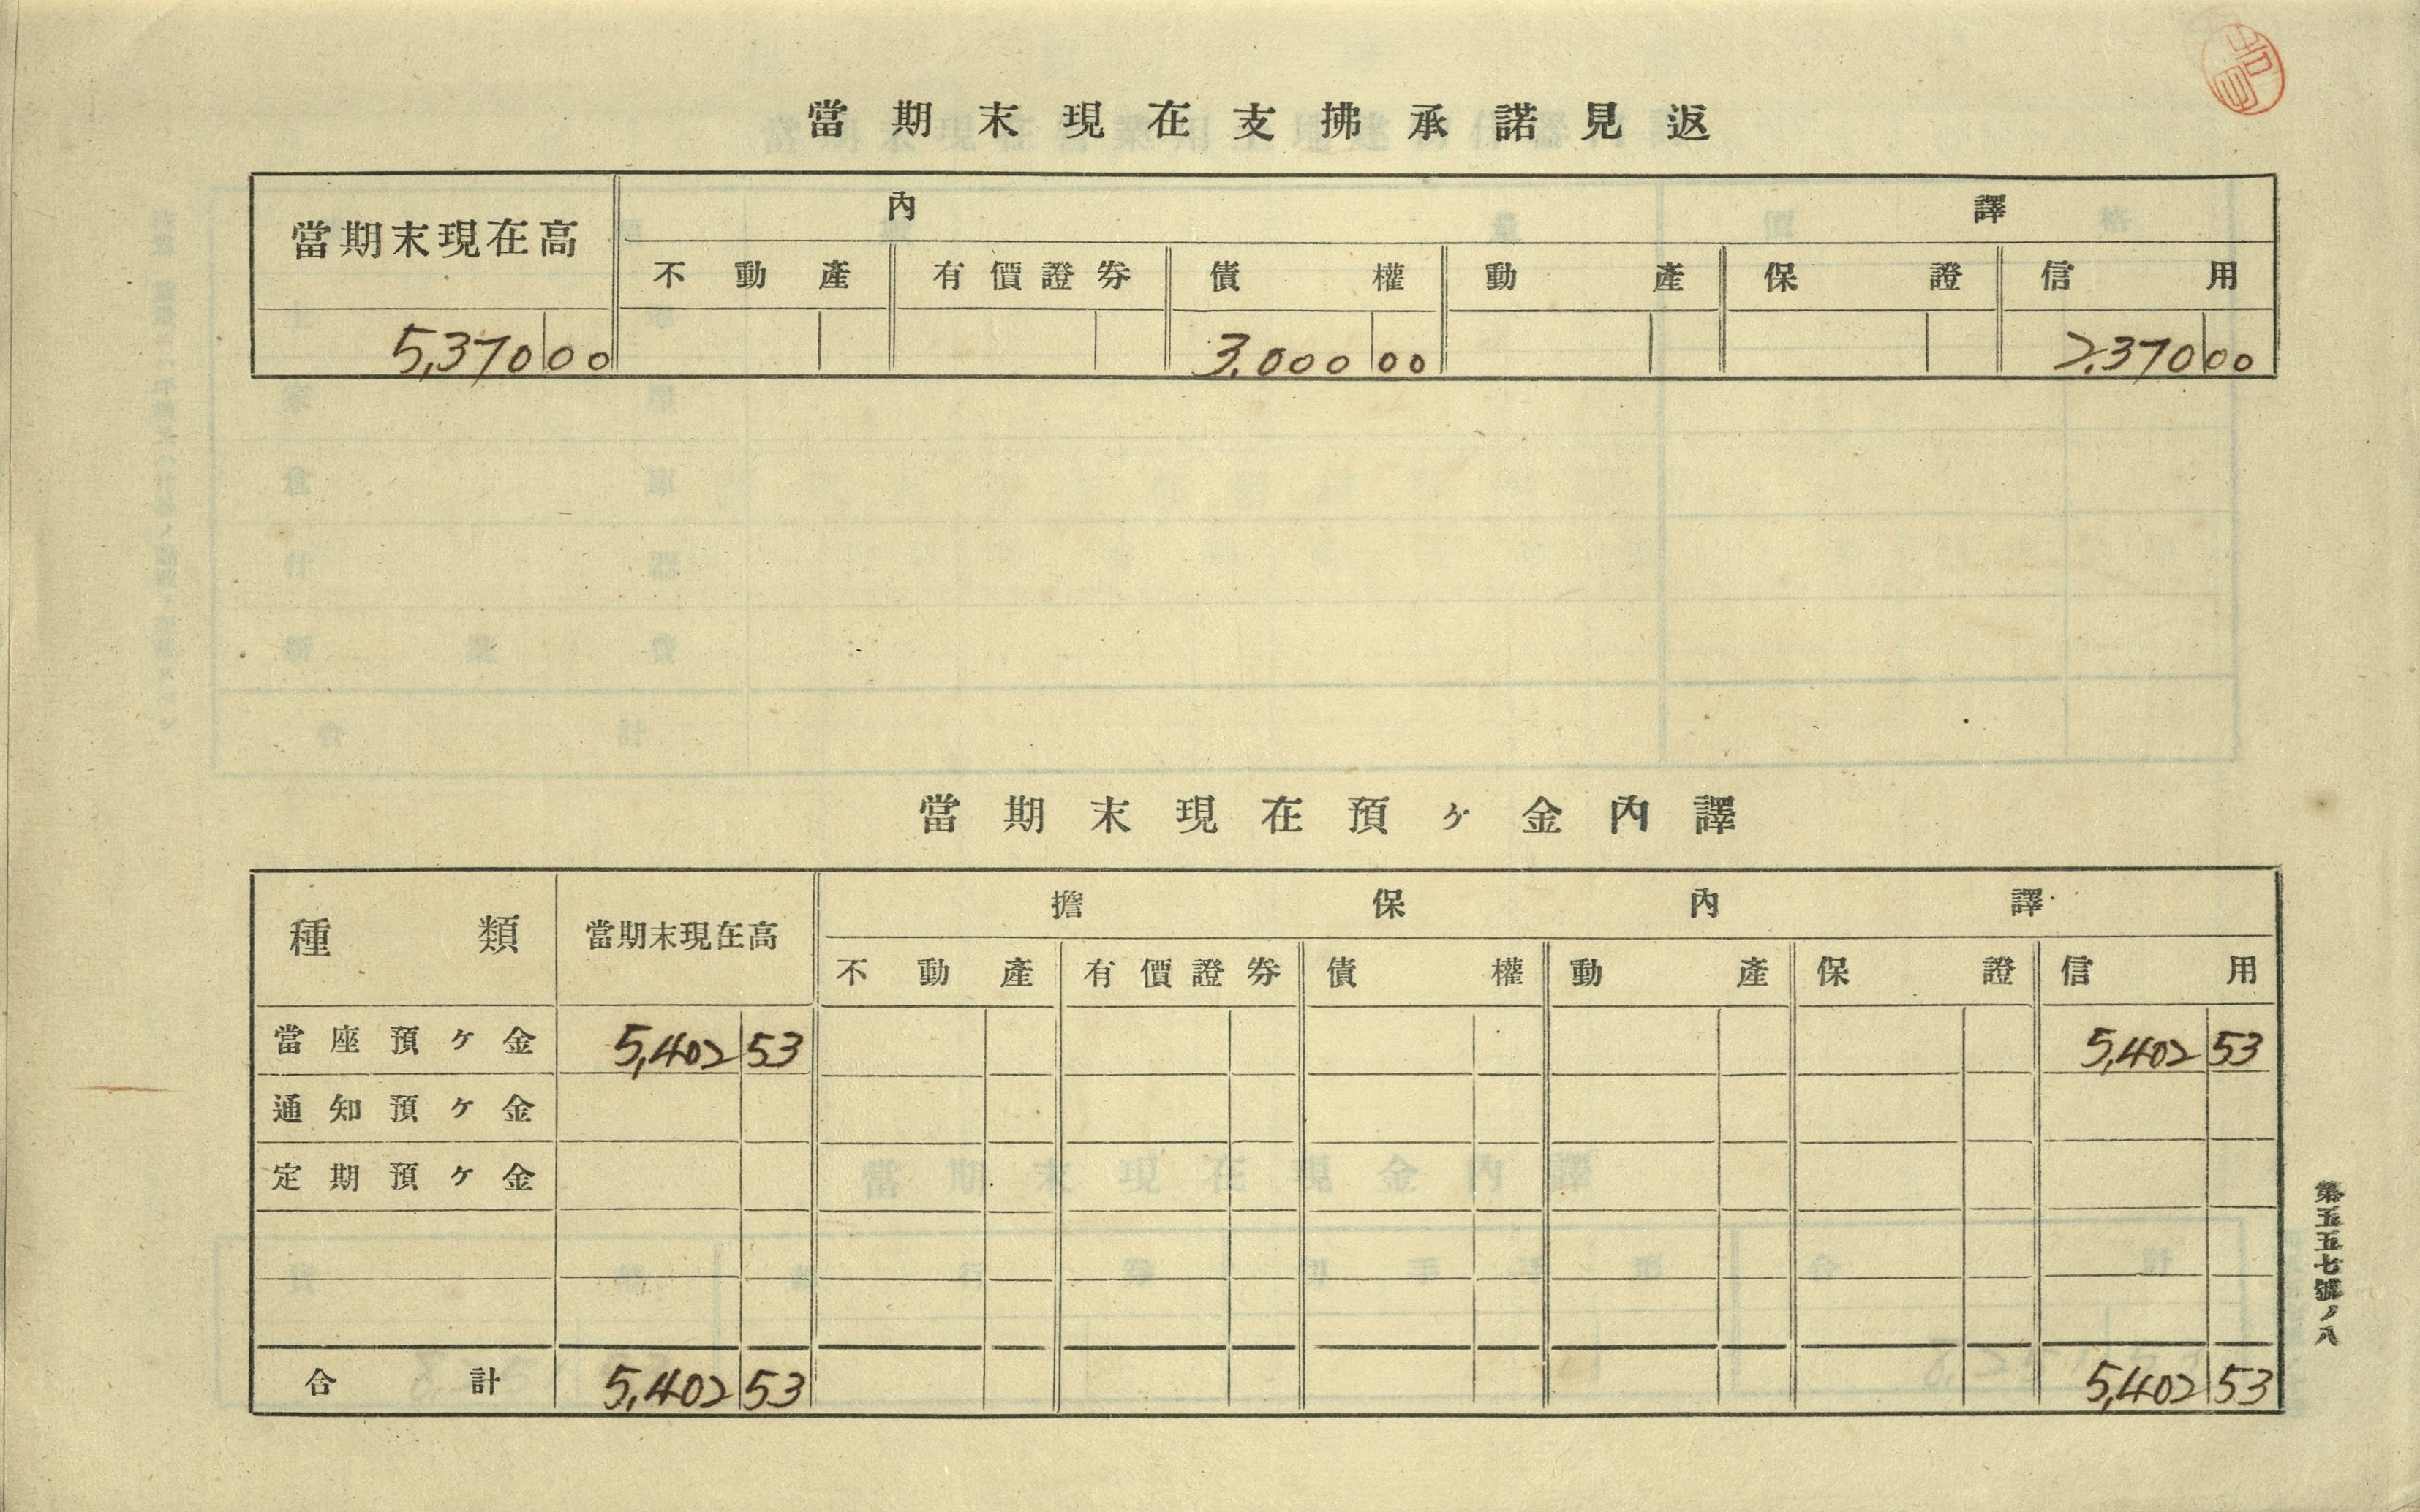 當期末現在支拂承諾見返
當期末現在高 內譯
不動產 有價證券 債權 動產 保證 信用
5,370 00 3,000 00 2,370 00
當期末現在預ヶ金內譯
種類 當期末現在高 擔保內譯
不動產 有價證券 債權 動產 保證 信用
當座預ヶ金 5,402 53 5,402 53
通知預ヶ金
定期預ヶ金
合計 5,402 53 5,402 53
第五五七號ノ八